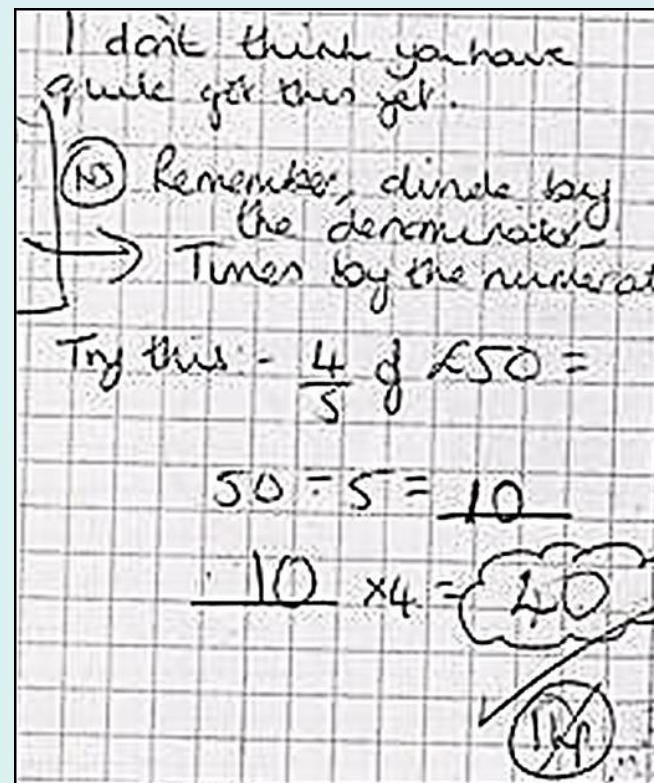 I don't think you have
quite got this yet.
NS Remember, divide by
the denominator -
Times by the numerat
Try this - 4/5 of £50 =
50 ÷ 5 = 10
10 ×4 = 40